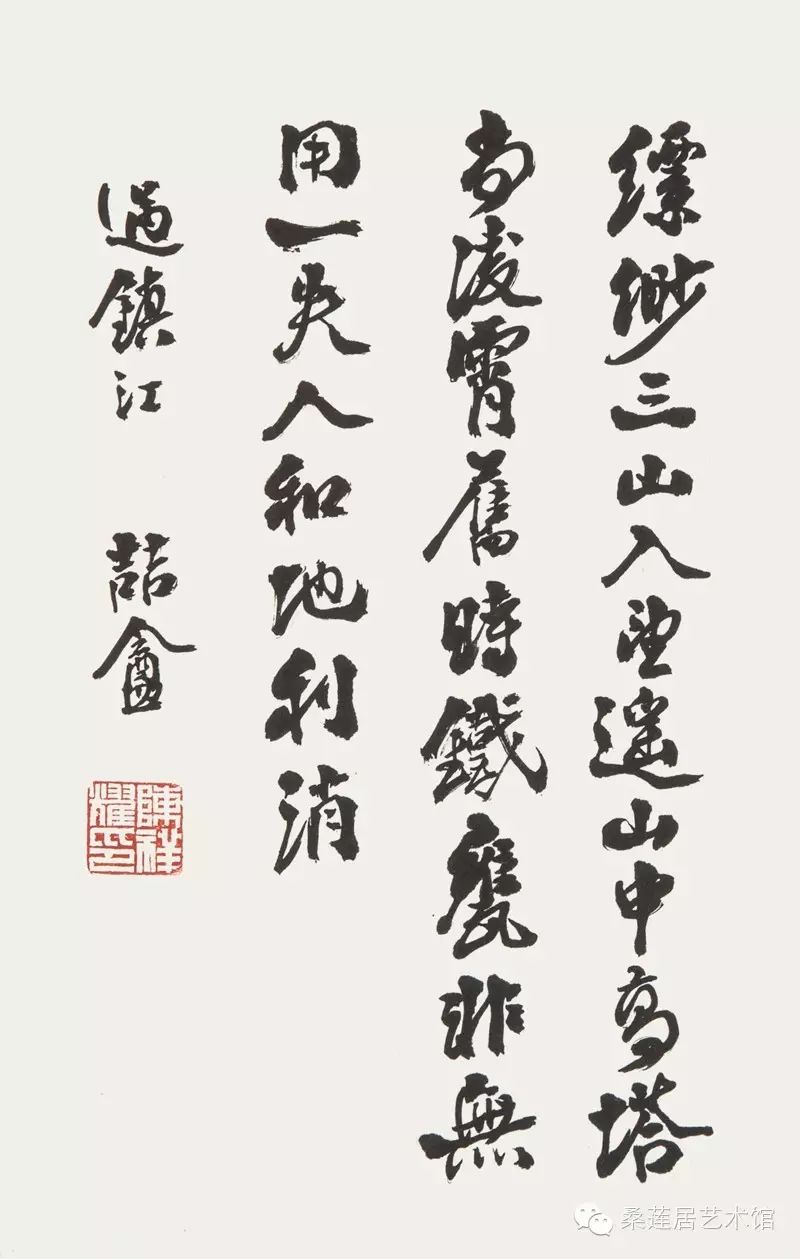 縹緲三山入望遥山中高塔
尚凌霄舊時鐵甕非無
用一失人和地利消
過鎮江 喆盦
陳祥耀印
桑莲居艺术馆